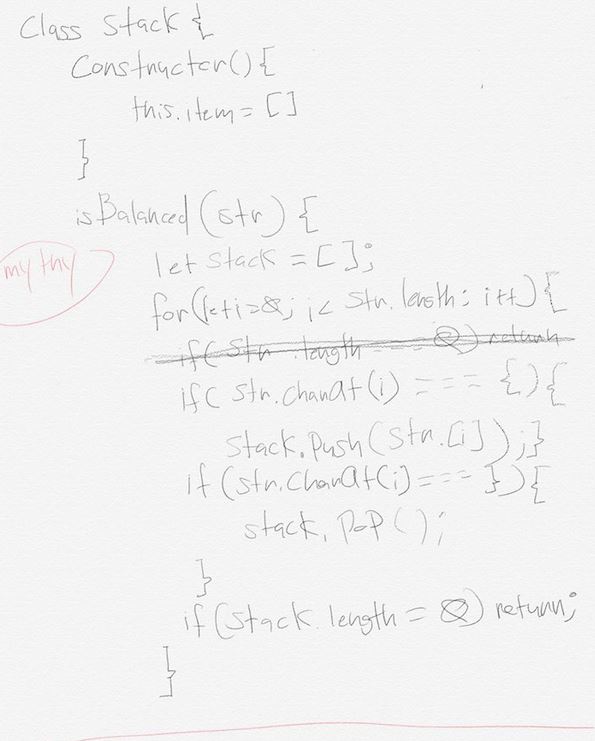 Class Stack {
Constructor() {
this.item = []
}
isBalanced (str) {
my thy
let stack = [];
for(let i=0; i< str.length; i++) {
if( str .length === 0) return
if( str.charAt(i) === {) {
stack.push(str.[i]);}
if (str.charAt(i) === }) {
stack.pop();
}
if (stack.length = 0) return;
}